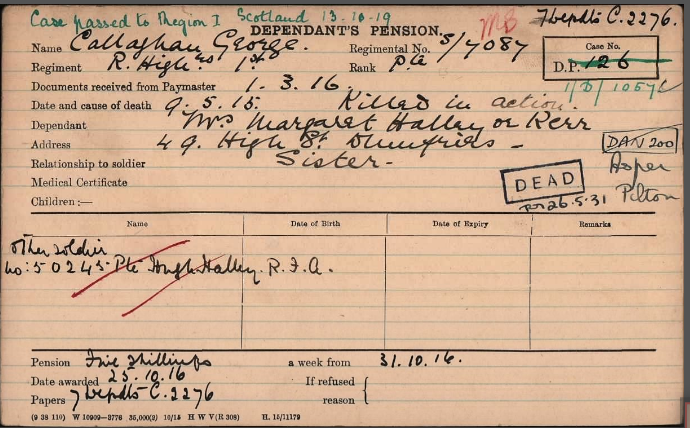 Case passed to Region I Scotland 13-10-19
MB
7 Depdts C. 2276.
DEPENDANT'S PENSION.
Name Callaghan George. Regimental No. S/7087
Regiment R. High rs 1st Rank Pte
Case No.
D.P. 126
1/D/1057
Documents received from Paymaster 1. 3. 16.
Date and cause of death 9. 5. 15. Killed in action.
Dependant Mrs Margaret Halley or Kerr
Address 49. High St. Dumfries -
DAN 200
Relationship to soldier Sister -
As per
Pilton
Medical Certificate
DEAD
26.5.31
Children :—
Name Date of Birth Date of Expiry Remarks
Other soldier
No: 50245 Pte Hugh Halley. R.F.A.
Pension Five Shillings a week from 31. 10. 16.
Date awarded 25. 10. 16 If refused
Papers 7 Depdts C. 2276 reason
(9 38 110) W 10909—3778 35,000(2) 10/15 H W V(R 308) H. 15/11179